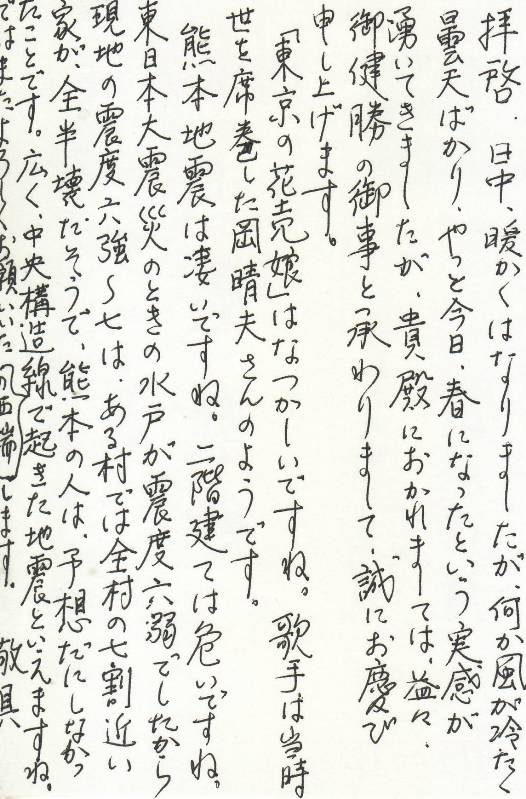 拝啓．日中、暖かくはなりましたが、何か風が冷たく
曇天ばかり、やっと今日、春になったという実感が
湧いてきましたが、貴殿におかれましては、益々、
御健勝の御事と承わりまして、誠にお慶び
申し上げます。
「東京の花売娘」はなつかしいですね。歌手は当時
世を席巻した岡晴夫さんのようです。
熊本地震は凄いですね。二階建ては危いですね。
東日本大震災のときの水戸が震度六弱でしたから
現地の震度六強～七は、ある村では全村の七割近い
家が、全半壊だそうで、熊本の人は、予想だにしなかっ
たことです。広く、中央構造線で起きた地震といえますね。
の西端
ではまたよろしくお願いいたします。 敬具